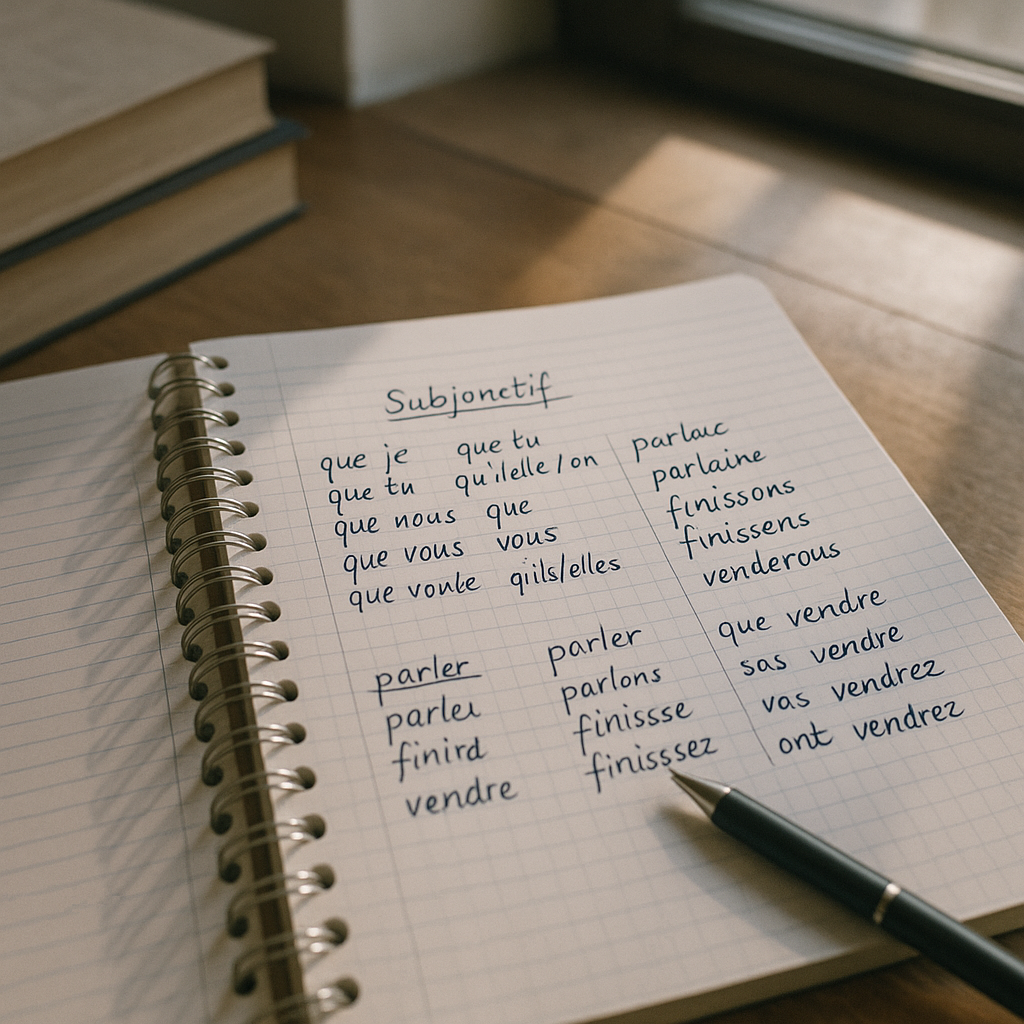 Subjonctif
que je que tu
que tu qu'ilelle/on
que nous que
que vous vous
que voule qiils/elles
parlauc
parlaine
finissons
finissens
venderous
que vendre
sas vendre
vas vendrez
ont vendrez
parler parler
parleu parlons
finird finissse
vendre finisssez